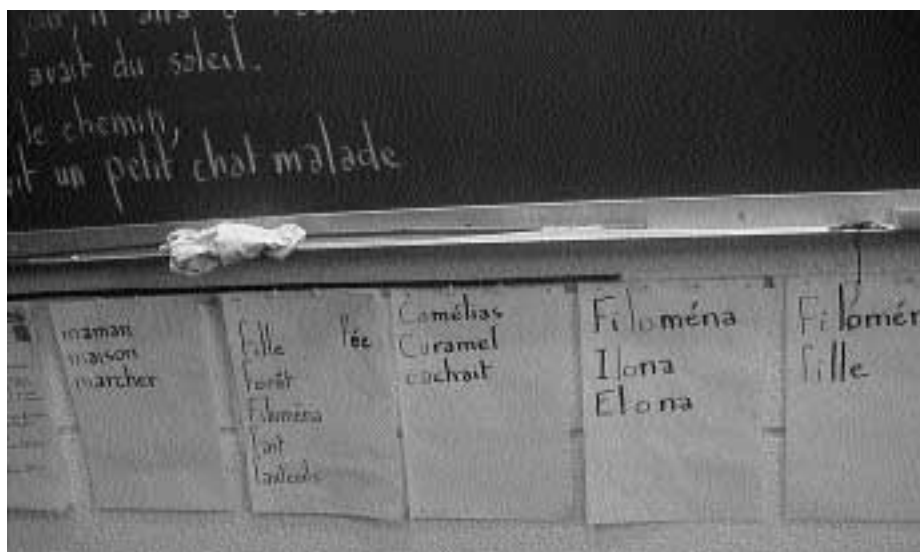 avait du soleil.
le chemin,
un petit chat malade
maman
maison
marcher
fille fée
forêt
Filoména
fait
Camélias
Caramel
cachait
Filoména
Ilona
Elona
Filomén
fille